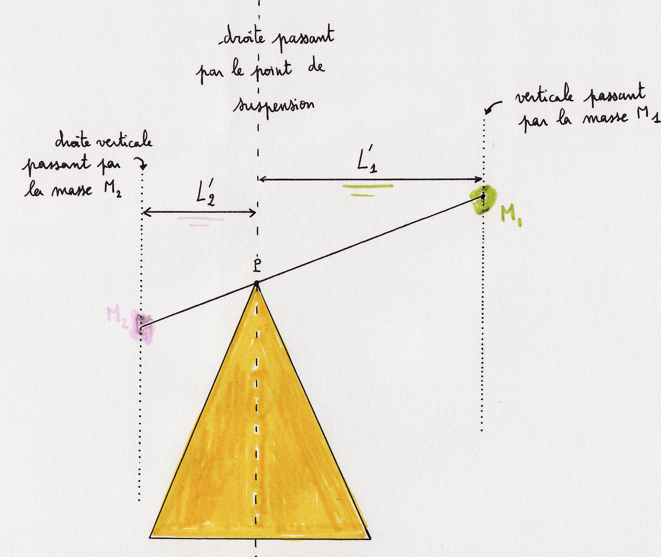 droite passant
par le point de
suspension
verticale passant
par la masse M1
droite verticale
passant par
la masse M2
L'1
L'2
M1
P
M2